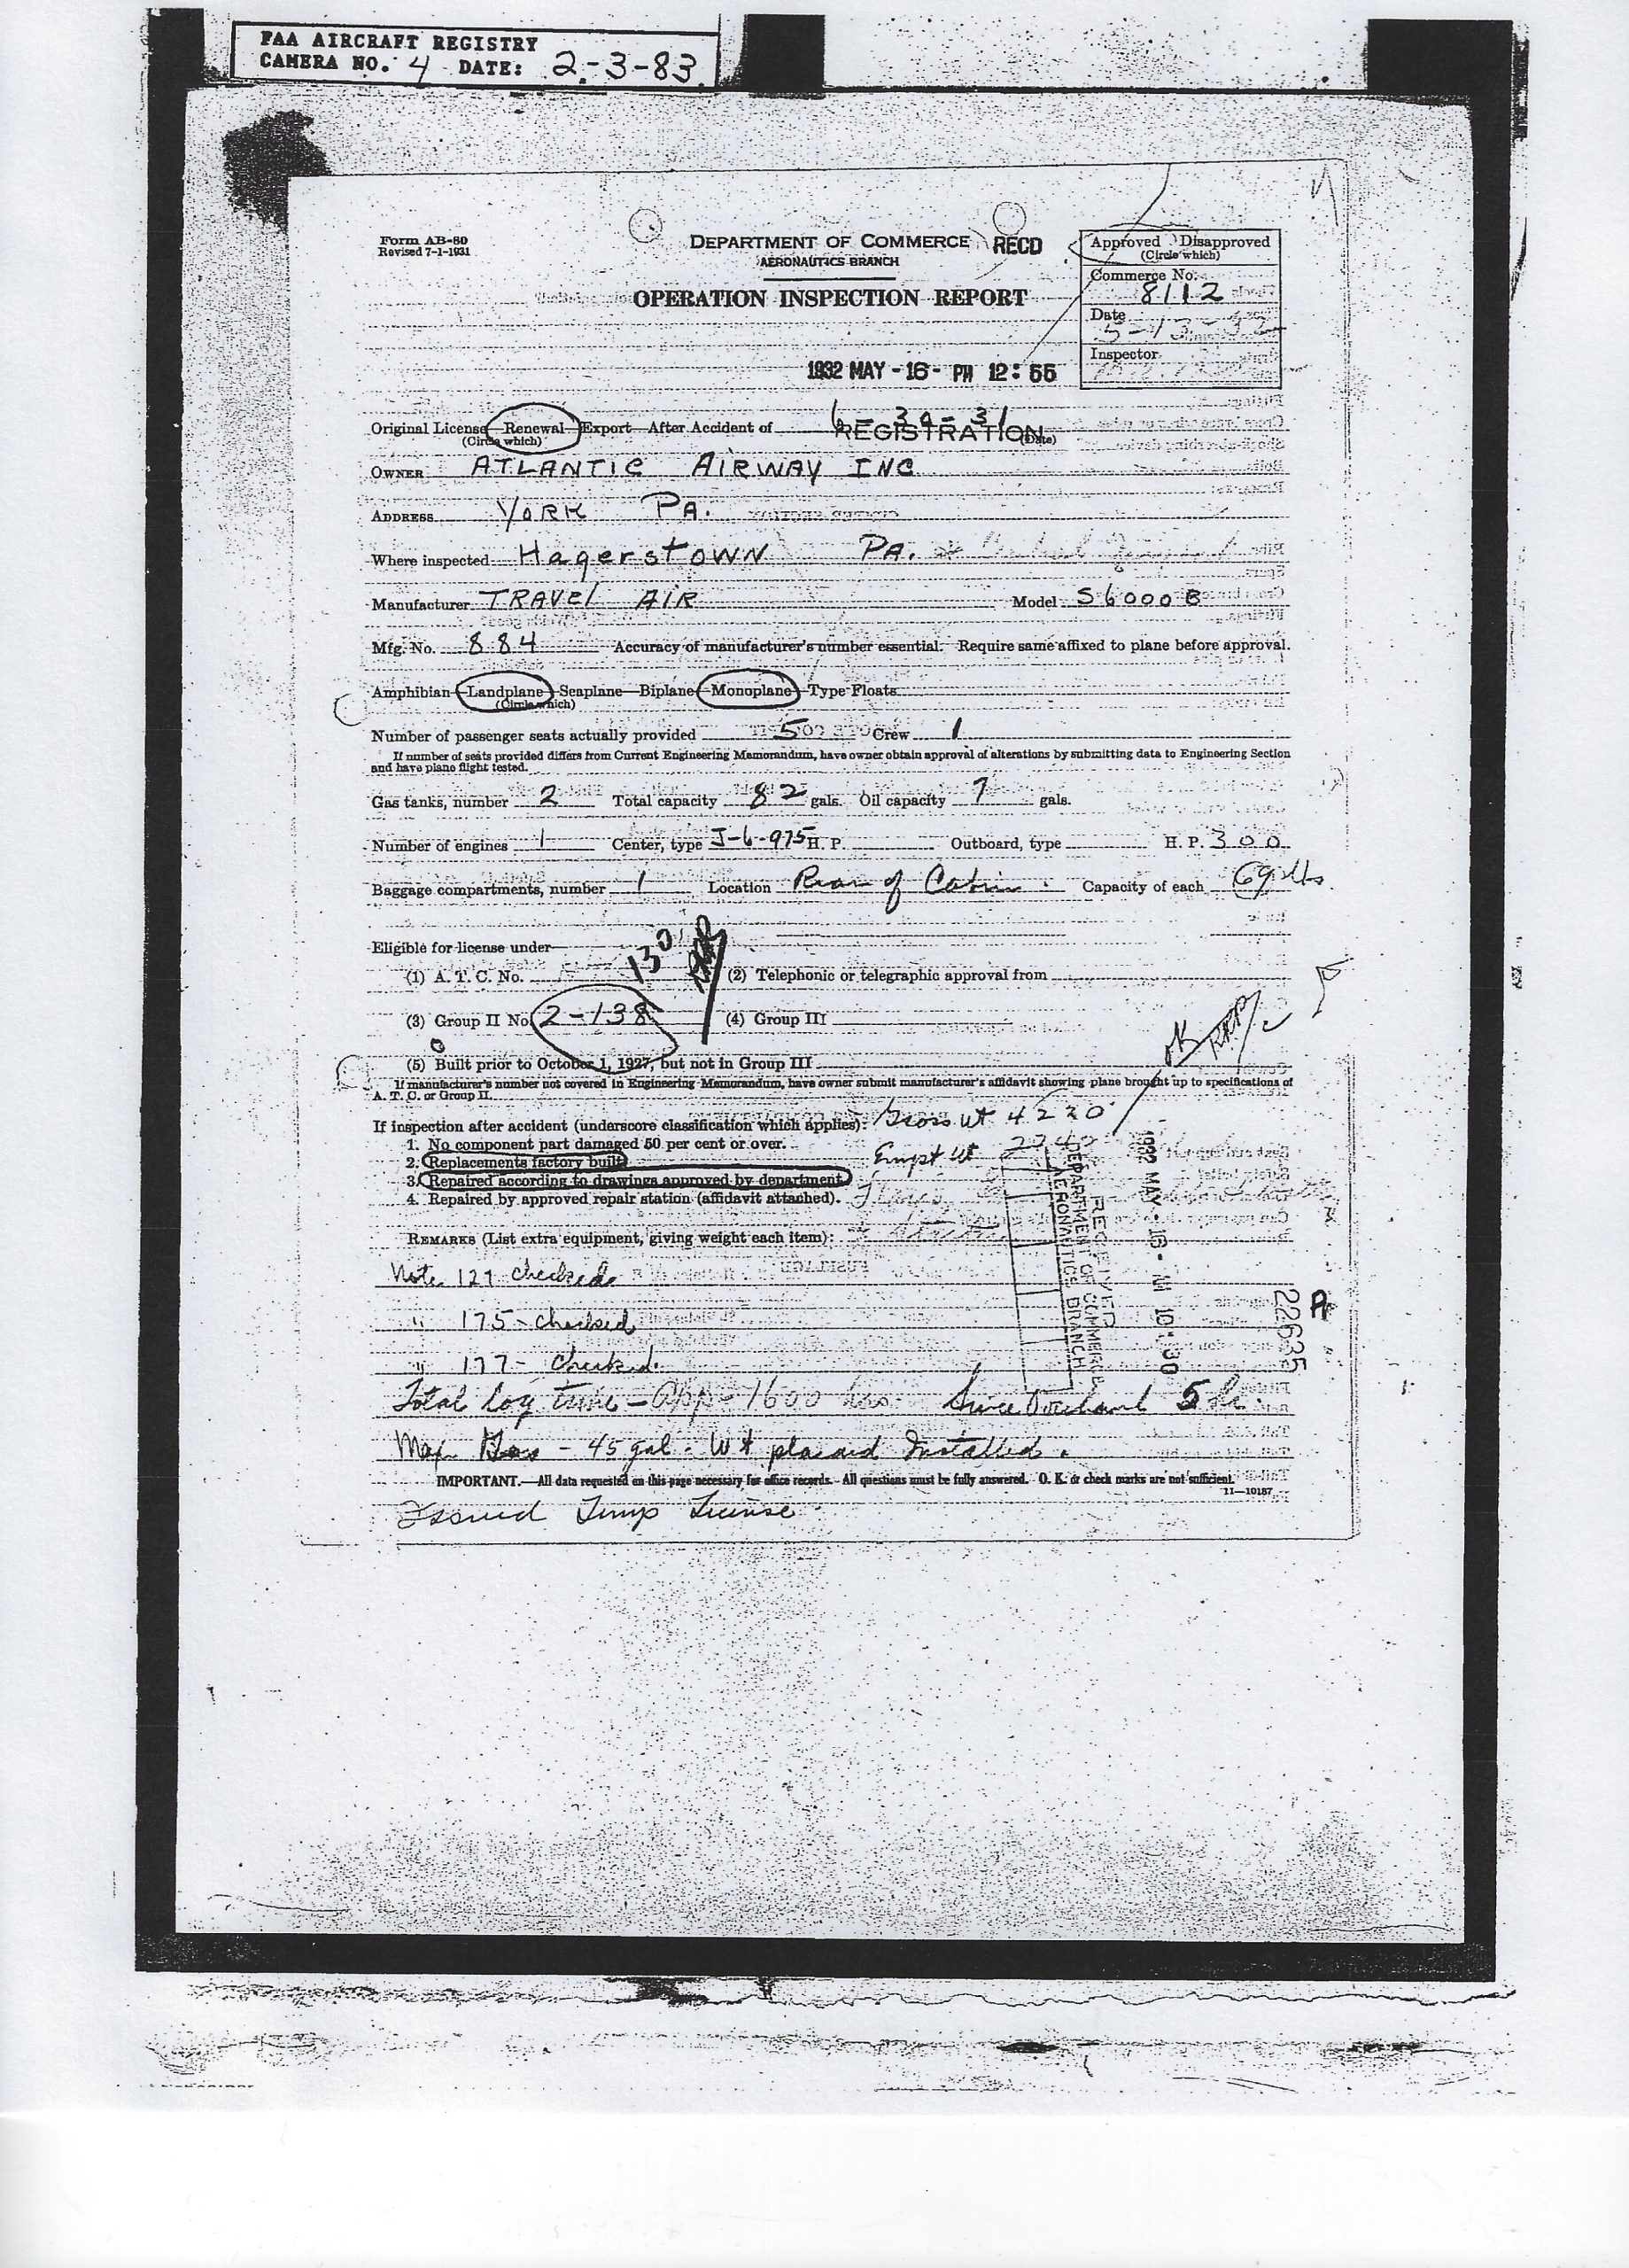 FAA AIRCRAFT REGISTRY
CAMERA NO. 4 DATE: 2-3-83
Form AB-80
Revised 7-1-1931
DEPARTMENT OF COMMERCE
AERONAUTICS BRANCH
RECD
OPERATION INSPECTION REPORT
Approved Disapproved
(Circle which)
Commerce No.
8112
Date
5-13-32
Inspector
1932 MAY -16- PM 12:55
Original License—Renewal—Export—After Accident of 6-30-31
(Circle which) REGISTRATION (Date)
OWNER ATLANTIC AIRWAY INC
ADDRESS YORK PA.
Where inspected Hagerstown PA.
Manufacturer TRAVEL AIR Model S6000B
Mfg. No. 884 Accuracy of manufacturer's number essential. Require same affixed to plane before approval.
Amphibian—Landplane—Seaplane—Biplane—Monoplane—Type Floats
(Circle which)
Number of passenger seats actually provided 5 Crew 1
If number of seats provided differs from Current Engineering Memorandum, have owner obtain approval of alterations by submitting data to Engineering Section
and have plane flight tested.
Gas tanks, number 2 Total capacity 82 gals. Oil capacity 7 gals.
Number of engines 1 Center, type J-6-975 H. P. Outboard, type H. P. 300
Baggage compartments, number 1 Location Rear of Cabin. Capacity of each 69 lbs
Eligible for license under—
(1) A. T. C. No. 130 (2) Telephonic or telegraphic approval from
(3) Group II No. 2-138 (4) Group III
(5) Built prior to October 1, 1927, but not in Group III
OK
If manufacturer's number not covered in Engineering Memorandum, have owner submit manufacturer's affidavit showing plane brought up to specifications of
A. T. C. or Group II.
If inspection after accident (underscore classification which applies): Gross Wt 4230
1. No component part damaged 50 per cent or over.
2. Replacements factory built. Empt Wt 2740
3. Repaired according to drawings approved by department.
4. Repaired by approved repair station (affidavit attached).
RECEIVED
DEPARTMENT OF COMMERCE
AERONAUTICS BRANCH
1932 MAY -16- AM 10:30
226635
A
REMARKS (List extra equipment, giving weight each item):
Note 127 checked
" 175- checked
" 177- checked.
Total log time - app - 1600 hrs. Since Overhaul 5 hr.
Max Gas - 45 gal. Wt placard Installed.
IMPORTANT.—All data requested on this page necessary for office records. All questions must be fully answered. O. K. or check marks are not sufficient.
11—10187
Issued Temp License